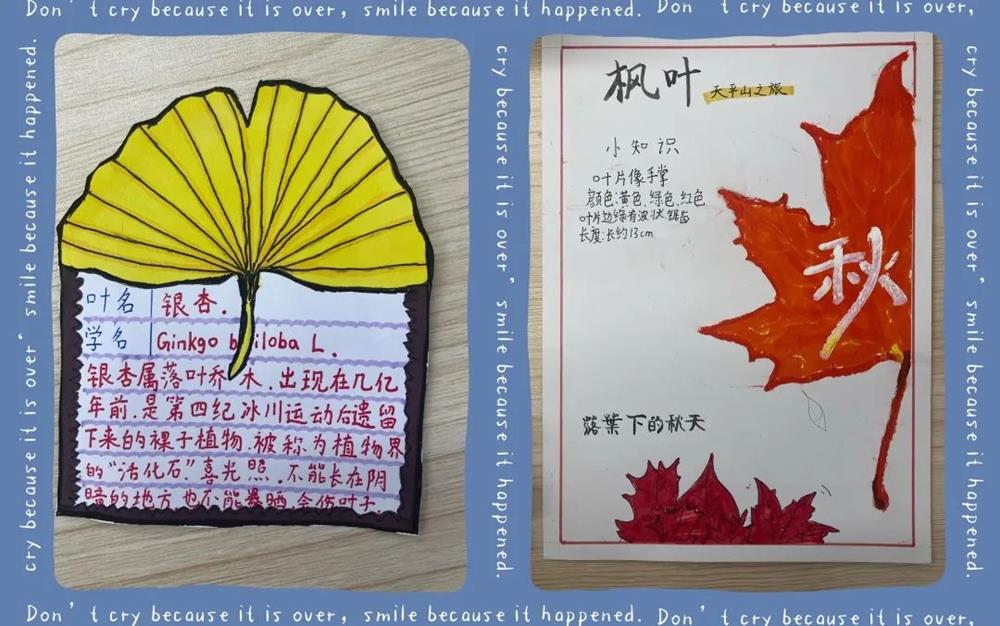 Don't cry because it is over, smile because it happened. Don't cry because it is over,
cry because it is over" smile because it happened.
叶名 银杏.
学名 Ginkgo biloba L.
银杏属落叶乔木.出现在几亿
年前.是第四纪冰川运动后遗留
下来的裸子植物.被称为植物界
的"活化石".喜光照.不能长在阴
暗的地方也不能暴晒会伤叶子.
cry because it is over" smile because it happened.
枫叶 天平山之旅
小知识
叶片像手掌
颜色:黄色、绿色、红色
叶片边缘有波状锯齿
长度:长约13cm
秋
落葉下的秋天
cry because it is over" smile because it happened.
Don't cry because it is over, smile because it happened. Don't cry because it is over,